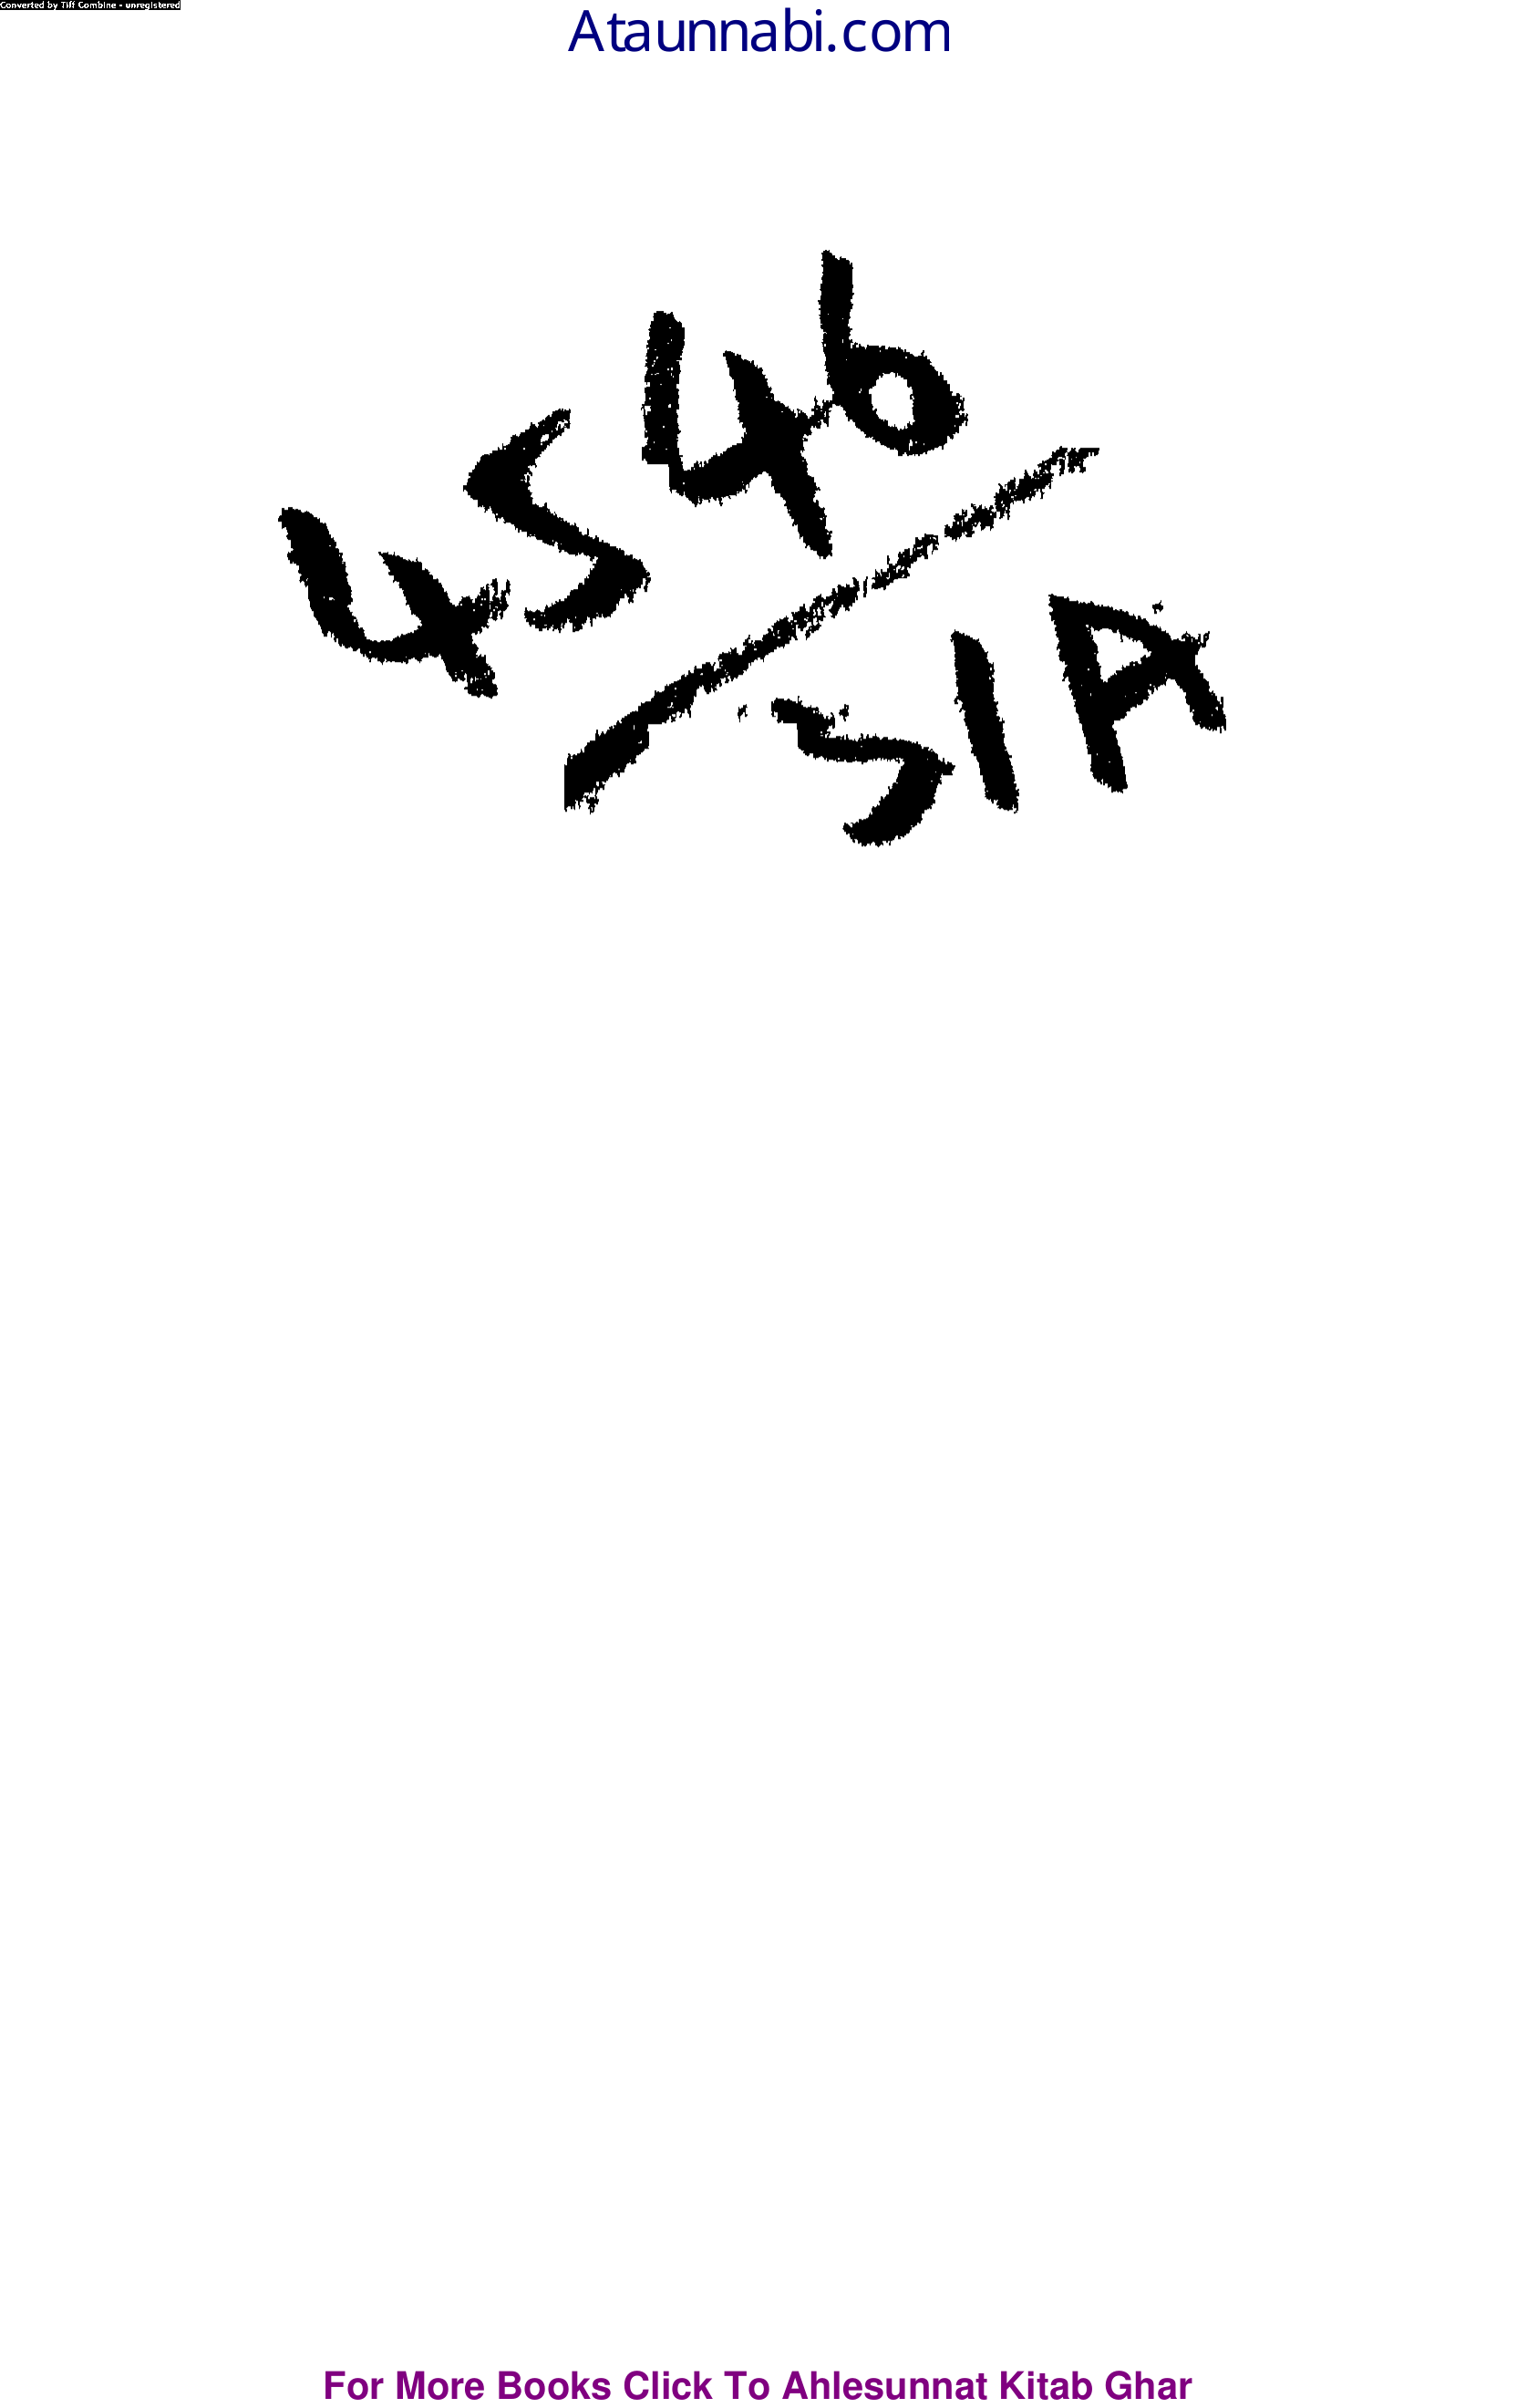 Converted by Tiff Combine - unregistered
Ataunnabi.com
4546
51A
For More Books Click To Ahlesunnat Kitab Ghar